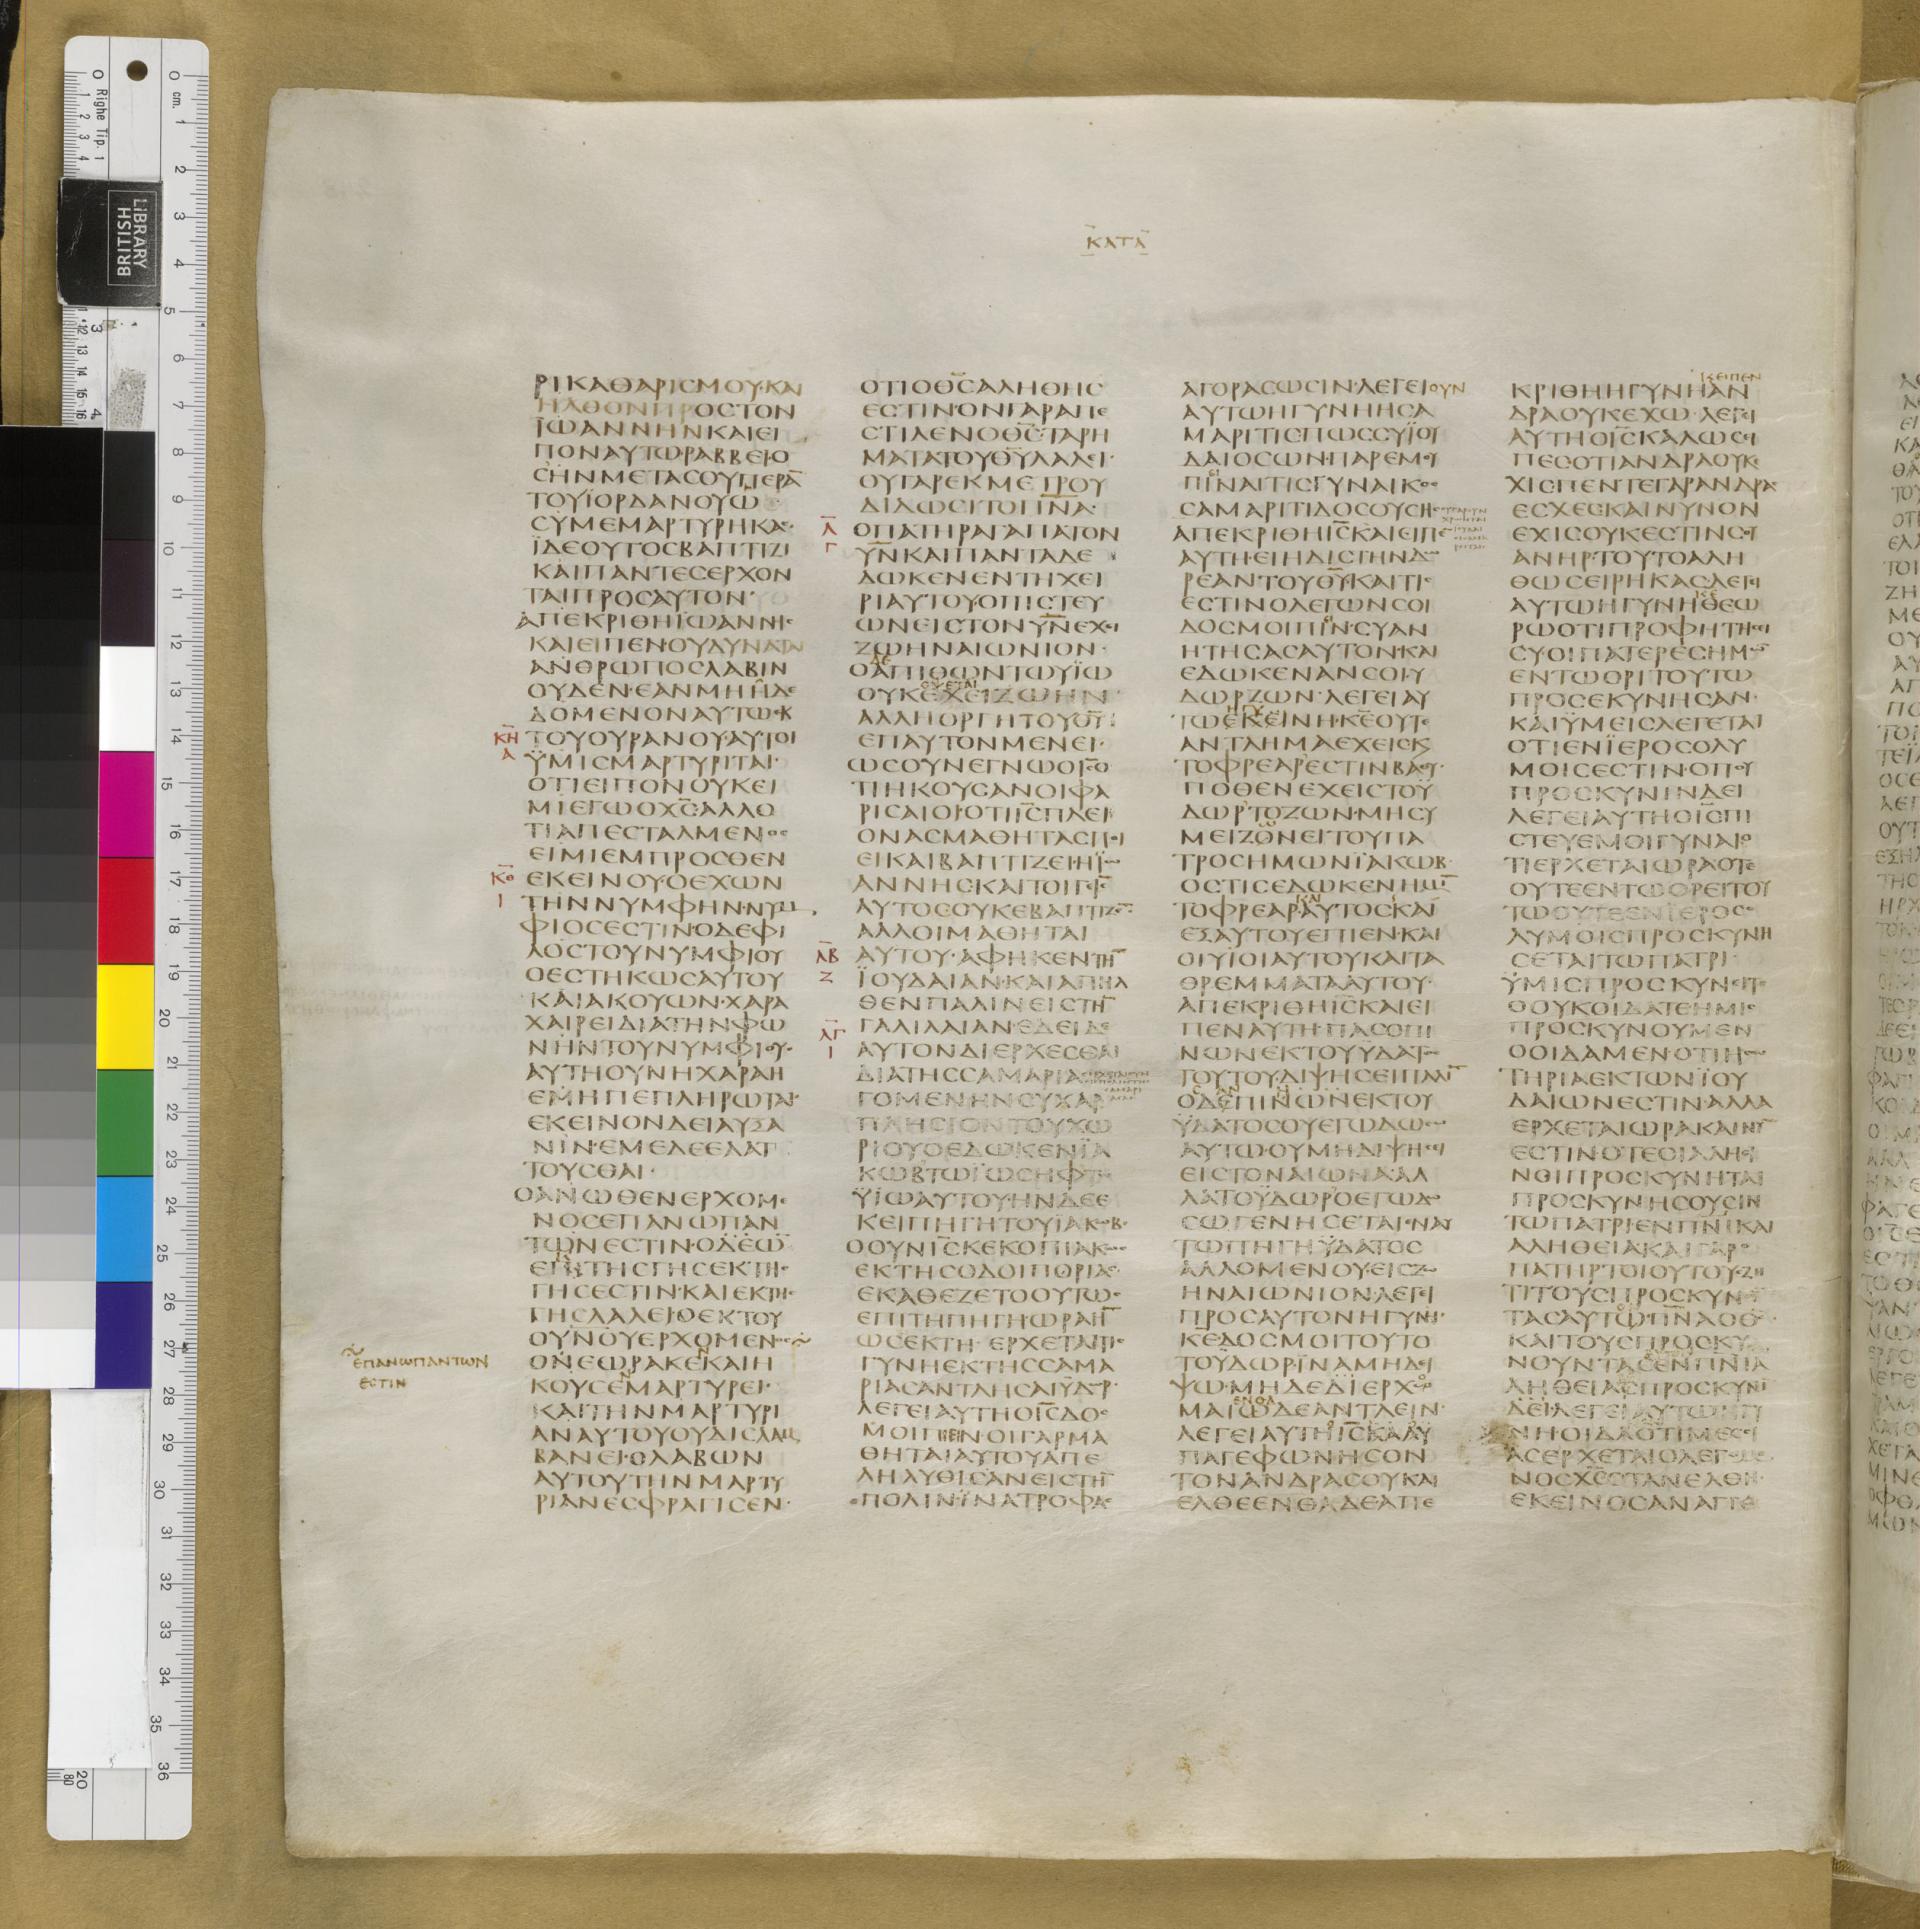 ΚΑΤΑ
ΡΙΚΑΘΑΡΙΣΜΟΥ·ΚΑΙ
ΗΛΘΟΝΠΡΟΣΤΟΝ
ΪΩΑΝΝΗΝΚΑΙΕΙ
ΠΟΝΑΥΤΩ·ΡΑΒΒΕΙ·Ο
ΣΗΝΜΕΤΑΣΟΥΠΕΡΑ
ΤΟΥΪΟΡΔΑΝΟΥΩ
ΣΥΜΕΜΑΡΤΥΡΗΚΑΣ
ΪΔΕΟΥΤΟΣΒΑΠΤΙΖΙ
ΚΑΙΠΑΝΤΕΣΕΡΧΟΝ
ΤΑΙΠΡΟΣΑΥΤΟΝ
ΑΠΕΚΡΙΘΗΪΩΑΝΝΗΣ
ΚΑΙΕΙΠΕΝ·ΟΥΔΥΝΑΤΑΙ
ΑΝΘΡΩΠΟΣΛΑΒΙΝ
ΟΥΔΕΝ·ΕΑΝΜΗΗΔΕ
ΔΟΜΕΝΟΝΑΥΤΩ·ΕΚ
ΚΗ ΤΟΥΟΥΡΑΝΟΥ·ΑΥΤΟΙ
Α ΫΜΙΣΜΑΡΤΥΡΙΤΑΙ·
ΟΤΙΕΙΠΟΝΟΥΚΕΙ
ΜΙΕΓΩΟΧΣ·ΑΛΛΟ
ΤΙΑΠΕΣΤΑΛΜΕΝΟΣ
ΕΙΜΙΕΜΠΡΟΣΘΕΝ
ΚΘ ΕΚΕΙΝΟΥ·ΟΕΧΩΝ
Ι ΤΗΝΝΥΜΦΗΝ·ΝΥΜ
ΦΙΟΣΕΣΤΙΝ·ΟΔΕΦΙ
ΛΟΣΤΟΥΝΥΜΦΙΟΥ
ΟΕΣΤΗΚΩΣΑΥΤΟΥ
ΚΑΙΑΚΟΥΩΝ·ΧΑΡΑ
ΧΑΙΡΕΙΔΙΑΤΗΝΦΩ
ΝΗΝΤΟΥΝΥΜΦΙΟΥ·
ΑΥΤΗΟΥΝΗΧΑΡΑΗ
ΕΜΗΠΕΠΛΗΡΩΤΑΙ·
ΕΚΕΙΝΟΝΔΕΙΑΥΞΑ
ΝΙΝ·ΕΜΕΔΕΕΛΑΤ
ΤΟΥΣΘΑΙ·
ΟΑΝΩΘΕΝΕΡΧΟΜΕ
ΝΟΣΕΠΑΝΩΠΑΝ
ΤΩΝΕΣΤΙΝ·ΟΔΕΩ
ΕΠΙΤΗΣΓΗΣΕΚΤΗΣ
ΓΗΣΕΣΤΙΝ·ΚΑΙΕΚΤΗΣ
ΓΗΣΛΑΛΕΙ·ΟΕΚΤΟΥ
ΟΥΝΟΥΕΡΧΟΜΕΝΟΣ
ΕΠΑΝΩΠΑΝΤΩΝ
ΕΣΤΙΝ
ΟΝΕΩΡΑΚΕΝΚΑΙΗ
ΚΟΥΣΕΝΜΑΡΤΥΡΕΙ·
ΚΑΙΤΗΝΜΑΡΤΥΡΙ
ΑΝΑΥΤΟΥΟΥΔΙΣΛΑΜ
ΒΑΝΕΙ·ΟΛΑΒΩΝ
ΑΥΤΟΥΤΗΝΜΑΡΤΥ
ΡΙΑΝΕΣΦΡΑΓΙΣΕΝ·
ΟΤΙΟΘΣΑΛΗΘΗΣ
ΕΣΤΙΝ·ΟΝΓΑΡΑΠΕ
ΣΤΙΛΕΝΟΘΣ·ΤΑΡΗ
ΜΑΤΑΤΟΥΘΥΛΑΛΕΙ·
ΟΥΓΑΡΕΚΜΕΤΡΟΥ
ΔΙΔΩΣΙΤΟΠΝΑ·
Λ ΟΠΑΤΗΡΑΓΑΠΑΤΟΝ
Γ ΥΝΚΑΙΠΑΝΤΑΔΕ
ΔΩΚΕΝΕΝΤΗΧΕΙ
ΡΙΑΥΤΟΥ·ΟΠΙΣΤΕΥ
ΩΝΕΙΣΤΟΝΥΝΕΧΕΙ
ΖΩΗΝΑΙΩΝΙΟΝ·
ΟΑΠΙΘΩΝΤΩΥΪΩ
ΟΥΚΕΧΕΙΖΩΗΝ
ΑΛΛΗΟΡΓΗΤΟΥΘΥ
ΕΠΑΥΤΟΝΜΕΝΕΙ·
ΩΣΟΥΝΕΓΝΩΟΙΣΟ
ΤΙΗΚΟΥΣΑΝΟΙΦΑ
ΡΙΣΑΙΟΙ·ΟΤΙΙΣΠΛΕΙ
ΟΝΑΣΜΑΘΗΤΑΣΠΟΙ
ΕΙΚΑΙΒΑΠΤΙΖΕΙ·ΗΪΩ
ΑΝΝΗΣΚΑΙΤΟΙΓΕ
ΑΥΤΟΣΟΥΚΕΒΑΠΤΙΖΕΝ
ΑΛΛΟΙΜΑΘΗΤΑΙ
ΛΒ ΑΥΤΟΥ·ΑΦΗΚΕΝΤΗ
Ζ ΪΟΥΔΑΙΑΝ·ΚΑΙΑΠΗΛ
ΘΕΝΠΑΛΙΝΕΙΣΤΗ
ΛΓ ΓΑΛΙΛΑΙΑΝ·ΕΔΕΙΔΕ
Ι ΑΥΤΟΝΔΙΕΡΧΕΣΘΑΙ
ΔΙΑΤΗΣΣΑΜΑΡΙΑΣ
ΓΟΜΕΝΗΝΣΥΧΑΡ
ΠΛΗΣΙΟΝΤΟΥΧΩ
ΡΙΟΥΟΕΔΩΚΕΝΙΑ
ΚΩΒΤΩΪΩΣΗΦΤΩ
ΫΪΩΑΥΤΟΥ·ΗΝΔΕΕ
ΚΕΙΠΗΓΗΤΟΥΪΑΚΩΒ·
ΟΟΥΝΙΣΚΕΚΟΠΙΑΚΩΣ
ΕΚΤΗΣΟΔΟΙΠΟΡΙΑΣ
ΕΚΑΘΕΖΕΤΟΟΥΤΩΣ
ΕΠΙΤΗΠΗΓΗ·ΩΡΑΗ
ΩΣΕΚΤΗ·ΕΡΧΕΤΑΙΤΙΣ
ΓΥΝΗΕΚΤΗΣΣΑΜΑ
ΡΙΑΣΑΝΤΛΗΣΑΙΫΔΩΡ·
ΛΕΓΕΙΑΥΤΗΟΙΣΔΟΣ
ΜΟΙΠΙΝ·ΟΙΓΑΡΜΑ
ΘΗΤΑΙΑΥΤΟΥΑΠΕ
ΛΗΛΥΘΙΣΑΝΕΙΣΤΗ
ΠΟΛΙΝ·ΪΝΑΤΡΟΦΑΣ
ΑΓΟΡΑΣΩΣΙΝ·ΛΕΓΕΙΟΥΝ
ΑΥΤΩΗΓΥΝΗΗΣΑ
ΜΑΡΙΤΙΣΠΩΣΣΥΪΟΥ
ΔΑΙΟΣΩΝ·ΠΑΡΕΜΟΥ
ΠΙΝΑΙΤΙΣΓΥΝΑΙΚΟΣ
ΣΑΜΑΡΙΤΙΔΟΣΟΥΣΗΣ
ΑΠΕΚΡΙΘΗΙΣΚΑΙΕΙΠΕ
ΑΥΤΗ·ΕΙΗΔΙΣΤΗΝΔΩ
ΡΕΑΝ·ΤΟΥΘΥ·ΚΑΙΤΙΣ
ΕΣΤΙΝΟΛΕΓΩΝΣΟΙ
ΔΟΣΜΟΙΠΙΝ·ΣΥΑΝ
ΗΤΗΣΑΣΑΥΤΟΝ·ΚΑΙ
ΕΔΩΚΕΝΑΝΣΟΙ·Υ
ΔΩΡΖΩΝ·ΛΕΓΕΙΑΥ
ΤΩΕΚΕΙΝΗ·ΚΕΟΥΤΕ
ΑΝΤΛΗΜΑΕΧΕΙΣΚ
ΤΟΦΡΕΑΡΕΣΤΙΝΒΑΘΥ·
ΠΟΘΕΝΕΧΕΙΣΤΟΫ
ΔΩΡΤΟΖΩΝ·ΜΗΣΥ
ΜΕΙΖΟΝΕΙΤΟΥΠΑ
ΤΡΟΣΗΜΩΝΪΑΚΩΒ·
ΟΣΤΙΣΕΔΩΚΕΝΗΜΙ
ΤΟΦΡΕΑΡΑΥΤΟΣΚΑΙ
ΕΞΑΥΤΟΥΕΠΙΕΝ·ΚΑΙ
ΟΙΥΪΟΙΑΥΤΟΥΚΑΙΤΑ
ΘΡΕΜΜΑΤΑΑΥΤΟΥ·
ΑΠΕΚΡΙΘΗΙΣΚΑΙΕΙ
ΠΕΝΑΥΤΗ·ΠΑΣΟΠΙ
ΝΩΝΕΚΤΟΥΫΔΑΤΟΣ
ΤΟΥΤΟΥ·ΔΙΨΗΣΕΙΠΑΛΙ
ΟΔΕΠΙΝΩΝΕΚΤΟΥ
ΫΔΑΤΟΣΟΥΕΓΩΔΩΣΩ
ΑΥΤΩ·ΟΥΜΗΔΙΨΗΣΕΙ
ΕΙΣΤΟΝΑΙΩΝΑ·ΑΛ
ΛΑΤΟΫΔΩΡ·ΟΕΓΩΔΩ
ΣΩ·ΓΕΝΗΣΕΤΑΙΕΝΑΥ
ΤΩΠΗΓΗΫΔΑΤΟΣ
ΑΛΛΟΜΕΝΟΥ·ΕΙΣΖΩ
ΗΝΑΙΩΝΙΟΝ·ΛΕΓΕΙ
ΠΡΟΣΑΥΤΟΝΗΓΥΝΗ·
ΚΕΔΟΣΜΟΙΤΟΥΤΟ
ΤΟΫΔΩΡΪΝΑΜΗΔΙ
ΨΩ·ΜΗΔΕΔΙΕΡΧΟ
ΜΑΙΩΔΕΑΝΤΛΕΙΝ·
ΛΕΓΕΙΑΥΤΗΙΣ
ΠΑΓΕΦΩΝΗΣΟΝ
ΤΟΝΑΝΔΡΑΣΟΥΚΑΙ
ΕΛΘΕΕΝΘΑΔΕΑΠΕ
ΚΡΙΘΗΗΓΥΝΗΑΝ
ΑΡΑΟΥΚΕΧΩ·ΛΕΓΕΙ
ΑΥΤΗΟΙΣΚΑΛΩΣΕΙ
ΠΕΣΟΤΙΑΝΔΡΑΟΥΚΕ
ΧΙΣΠΕΝΤΕΓΑΡΑΝΔΡΑΣ
ΕΣΧΕΣΚΑΙΝΥΝΟΝ
ΕΧΙΣΟΥΚΕΣΤΙΝΣΟΥ
ΑΝΗΡ·ΤΟΥΤΟΑΛΗ
ΘΩΣΕΙΡΗΚΑΣΛΕΓΕΙ
ΑΥΤΩΗΓΥΝΗΘΕΩ
ΡΩΟΤΙΠΡΟΦΗΤΗΣΕΙ
ΣΥ·ΟΙΠΑΤΕΡΕΣΗΜΩ
ΕΝΤΩΟΡΙΤΟΥΤΩ
ΠΡΟΣΕΚΥΝΗΣΑΝ·
ΚΑΙΫΜΕΙΣΛΕΓΕΤΑΙ
ΟΤΙΕΝΪΕΡΟΣΟΛΥ
ΜΟΙΣΕΣΤΙΝ·ΟΠΟΥ
ΠΡΟΣΚΥΝΙΝΔΕΙ
ΛΕΓΕΙΑΥΤΗΟΙΣΠΙ
ΣΤΕΥΕΜΟΙΓΥΝΑΙΟ
ΤΙΕΡΧΕΤΑΙΩΡΑΟΤΕ
ΟΥΤΕΕΝΤΩΟΡΕΙΤΟΥ
ΤΩΟΥΤΕΕΝΪΕΡΟΣΟ
ΛΥΜΟΙΣΠΡΟΣΚΥΝΗ
ΣΕΤΑΙΤΩΠΑΤΡΙ·
ΫΜΙΣΠΡΟΣΚΥΝΕΙΤΕ
ΟΟΥΚΟΙΔΑΤΕΗΜΙΣ
ΠΡΟΣΚΥΝΟΥΜΕΝ
ΟΟΙΔΑΜΕΝ·ΟΤΙΗΣΩ
ΤΗΡΙΑΕΚΤΩΝΪΟΥ
ΔΑΙΩΝΕΣΤΙΝ·ΑΛΛΑ
ΕΡΧΕΤΑΙΩΡΑΚΑΙΝΥ
ΕΣΤΙΝ·ΟΤΕΟΙΑΛΗΘΙ
ΝΟΙΠΡΟΣΚΥΝΗΤΑΙ
ΠΡΟΣΚΥΝΗΣΟΥΣΙΝ
ΤΩΠΑΤΡΙΕΝΠΝΙΚΑΙ
ΑΛΗΘΕΙΑ·ΚΑΙΓΑΡΟ
ΠΑΤΗΡΤΟΙΟΥΤΟΥΣΖΗ
ΤΙΤΟΥΣΠΡΟΣΚΥΝ
ΤΑΣΑΥΤΩ·ΠΝΑΟΘΣ·
ΚΑΙΤΟΥΣΠΡΟΣΚΥ
ΝΟΥΝΤΑΣΕΝΠΝΙΑ
ΛΗΘΕΙΑΣΠΡΟΣΚΥΝΙ
ΔΕΙ·ΛΕΓΕΙΑΥΤΩΗΓΥ
ΝΗΟΙΔΑΟΤΙΜΕΣΙ
ΑΣΕΡΧΕΤΑΙΟΛΕΓΟΜΕ
ΝΟΣΧΣΟΤΑΝΕΛΘΗ·
ΕΚΕΙΝΟΣΑΝΑΓΓΕ